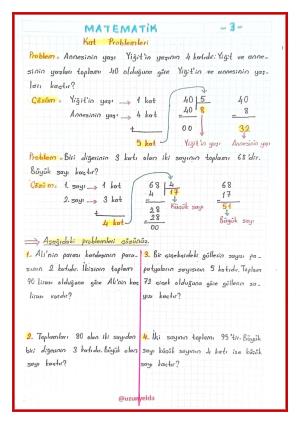 MATEMATİK -3-
Kat Problemleri
Problem. Annesinin yaşı Yiğit'in yaşının 4 katıdır. Yiğit ve anne-
sinin yaşları toplamı 40 olduğuna göre Yiğit'in ve annesinin yaş-
ları kaçtır?
Çözüm: Yiğit'in yaşı → 1 kat 40 5 40
Annesinin yaşı → 4 kat 40 8 8
+ 00 32
5 kat Yiğit'in yaşı Annesinin yaşı
Problem. Biri diğerinin 3 katı olan iki sayının toplamı 68'dir.
Büyük sayı kaçtır?
Çözüm: 1. sayı → 1 kat 68 4 68
2. sayı → 3 kat 4 17 17
+ 28 Küçük sayı 51
4 kat 28 Büyük sayı
00
⇒ Aşağıdaki problemleri çözünüz.
1. Ali'nin parası kardeşinin para-
sının 2 katıdır. İkisinin toplam
90 liraları olduğuna göre Ali'nin kaç
lirası vardır?
3. Bir çiçekçideki güllerin sayısı pa-
patyaların sayısının 5 katıdır. Toplam
72 çiçek olduğuna göre güllerin sa-
yısı kaçtır?
2. Toplamları 80 olan iki sayıdan
biri diğerinin 3 katıdır. Büyük olan
sayı kaçtır?
4. İki sayının toplamı 95'tir. Büyük
sayı küçük sayının 4 katı ise küçük
sayı kaçtır?